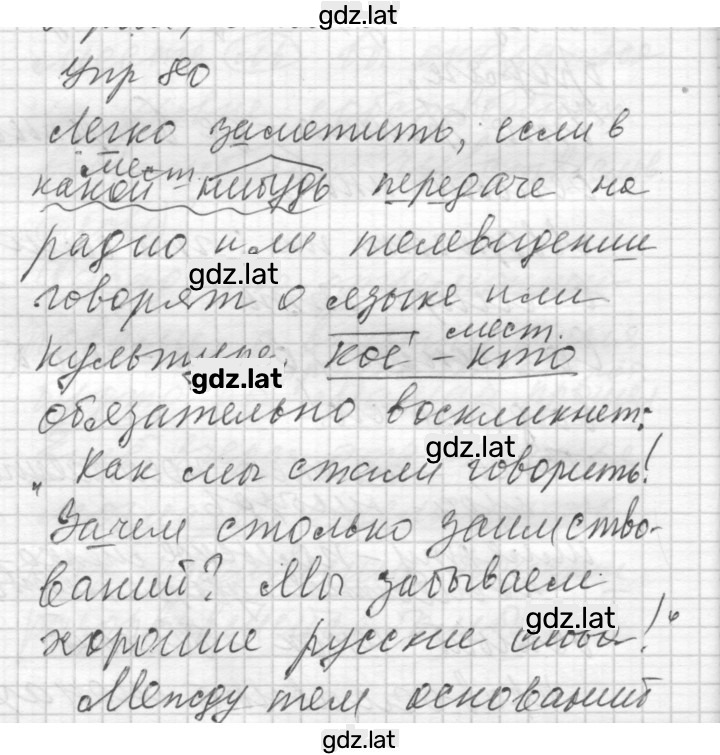 gdz.lat
Упр 80
Легко заметить, если в
мест.
какой-нибудь передаче на
радио или телевидении
gdz.lat
говорят о языке или
мест.
культуре, кое-кто
gdz.lat
обязательно воскликнет:
gdz.lat
„Как мы стали говорить!
Зачем столько заимство-
ваний? Мы забываем
gdz.lat
хорошие русские слова!“
Между тем оснований
gdz.lat